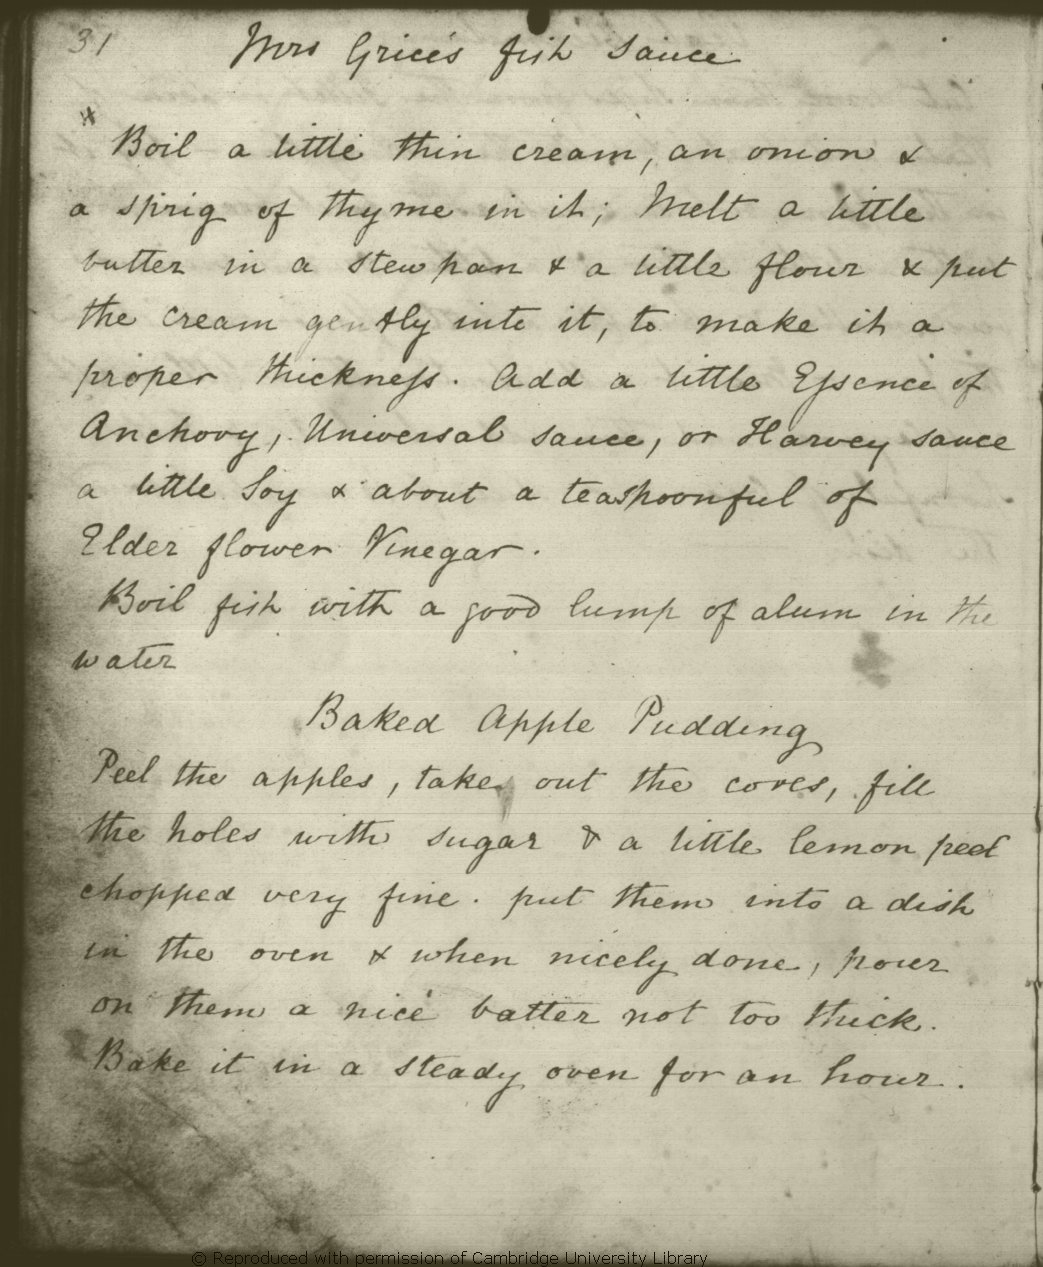 31
Mrs Grice's fish sauce
Boil a little thin cream, an onion &
a sprig of thyme in it; Melt a little
butter in a stewpan & a little flour & put
the cream gently into it, to make it a
proper thickneſs. Add a little Eſsence of
Anchovy, Universal sauce, or Harvey sauce
a little Soy & about a teaspoonful of
Elder flower Vinegar.
Boil fish with a good lump of alum in the
water
Baked Apple Pudding
Peel the apples, take out the cores, fill
the holes with sugar & a little lemon peel
chopped very fine. put them into a dish
in the oven & when nicely done, pour
on them a nice batter not too thick.
Bake it in a steady oven for an hour.
© Reproduced with permission of Cambridge University Library